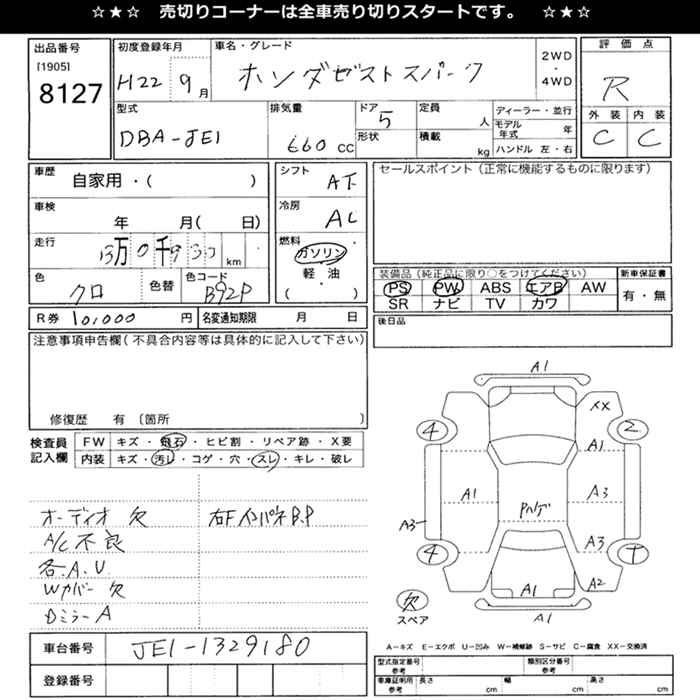 ☆ ★ ☆ 売切りコーナーは全車売り切りスタートです。 ☆ ★ ☆
出品番号
[1905]
8127
初度登録年月
H22 9月
車名・グレード
ホンダゼストスパーク
2WD
4WD
評価点
R
外装 内装
C C
型式
DBA-JE1
排気量
660 CC
ドア 5
形状
定員 人
積載 kg
ディーラー・並行
モデル年式 年
ハンドル 左・右
車歴
自家用・( )
車検
年 月( 日)
走行
13万0千 km
色
クロ
色替
色コード
B92P
シフト
AT
冷房
AC
燃料
ガソリン
軽・油
( )
セールスポイント(正常に機能するものに限ります)
装備品(純正品に限り○をつけてください)
PS PW ABS エアB AW
SR ナビ TV カワ
新車保証書
有・無
R券 10,000 円 名変通知期限 月 日
後日品
注意事項申告欄(不具合内容等は具体的に記入して下さい)
修復歴 有〔箇所 〕
検査員記入欄
FW キズ・飛石・ヒビ割・リペア跡・X要
内装 キズ・汚レ・コゲ・穴・スレ・キレ・破レ
オーディオ欠
右FインパネB.P
A/C不良
各A.U
Wカバー欠
DミラーA
車台番号
JE1-1329180
登録番号
A1
XX
4
2
A1
A1
A3
A3
A3
4
A2
A1
欠
スペア
A1
A-キズ E-エクボ U-凹み W-補修跡 S-サビ C-腐食 XX-交換済
型式指定番号 参考
類別区分番号 参考
車庫証明用 参考
長さ cm 幅 cm 高さ cm